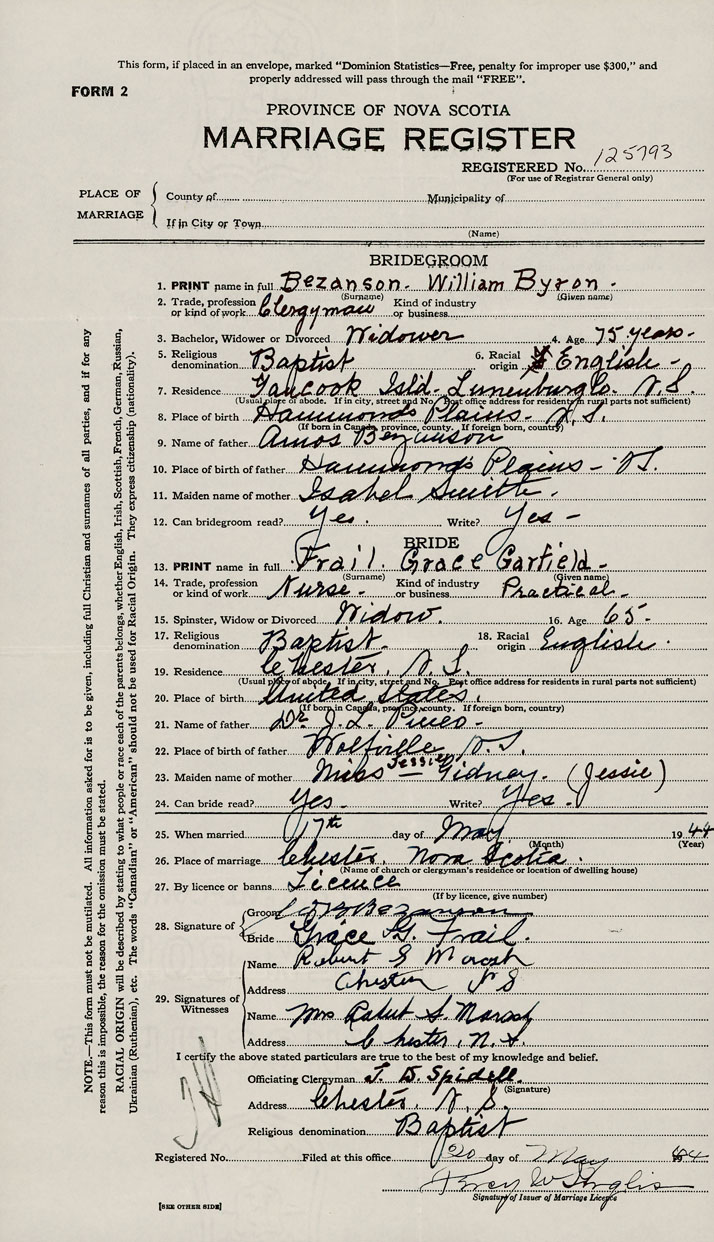 This form, if placed in an envelope, marked "Dominion Statistics—Free, penalty for improper use $300," and
properly addressed will pass through the mail "FREE".
FORM 2
PROVINCE OF NOVA SCOTIA
MARRIAGE REGISTER
REGISTERED No. 125793
(For use of Registrar General only)
PLACE OF MARRIAGE
County of
Municipality of
If in City or Town
(Name)
BRIDEGROOM
1. PRINT name in full Bezanson. William Byron.
(Surname) (Given name)
2. Trade, profession or kind of work Clergyman Kind of industry or business
3. Bachelor, Widower or Divorced Widower 4. Age 75 years.
5. Religious denomination Baptist 6. Racial origin English
7. Residence Tancook Isld. Lunenburg Co. N.S.
(Usual place of abode. If in city, street and No. Post office address for residents in rural parts not sufficient)
8. Place of birth Hammonds Plains. N.S.
(If born in Canada, province, county. If foreign born, country)
9. Name of father Amos Bezanson
10. Place of birth of father Hammonds Plains
11. Maiden name of mother Isabel Smith.
12. Can bridegroom read? Yes. Write? Yes
BRIDE
13. PRINT name in full Frail. Grace Garfield
(Surname) (Given name)
14. Trade, profession or kind of work Nurse Kind of industry or business Practical
15. Spinster, Widow or Divorced Widow. 16. Age 65
17. Religious denomination Baptist. 18. Racial origin English.
19. Residence Chester, N.S.
(Usual place of abode. If in city, street and No. Post office address for residents in rural parts not sufficient)
20. Place of birth United States.
(If born in Canada, province, county. If foreign born, country)
21. Name of father Dr J. L. Pineo
22. Place of birth of father Wolfville N.S.
23. Maiden name of mother Miss Jessie Gidney. (Jessie)
24. Can bride read? Yes Write? Yes
25. When married 17th day of May 1944
(Month) (Year)
26. Place of marriage Chester, Nova Scotia.
(Name of church or clergyman's residence or location of dwelling house)
27. By licence or banns Licence
(If by licence, give number)
28. Signature of
Groom W B Bezanson
Bride Grace G. Frail.
29. Signatures of Witnesses
Name Robert S
Address Chester N S
Name Mrs Robert S.
Address Chester, N.S.
I certify the above stated particulars are true to the best of my knowledge and belief.
Officiating Clergyman J. D. Spidell.
(Signature)
Address Chester, N.S.
Religious denomination Baptist
Registered No. Filed at this office 20 day of May 44
Percy W Inglis
Signature of Issuer of Marriage Licence
[SEE OTHER SIDE]
NOTE.—This form must not be mutilated. All information asked for is to be given, including full Christian and surnames of all parties, and if for any
reason this is impossible, the reason for the omission must be stated.
RACIAL ORIGIN will be described by stating to what people or race each of the parents belongs, whether English, Irish, Scottish, French, German, Russian,
Ukrainian (Ruthenian), etc. The words "Canadian" or "American" should not be used for Racial Origin. They express citizenship (nationality).